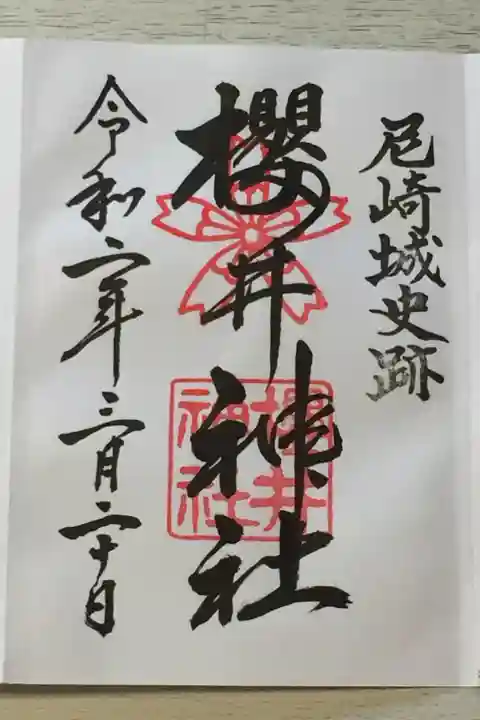 尼崎城史跡
櫻井神社
櫻井
神社
令和二年三月二十日